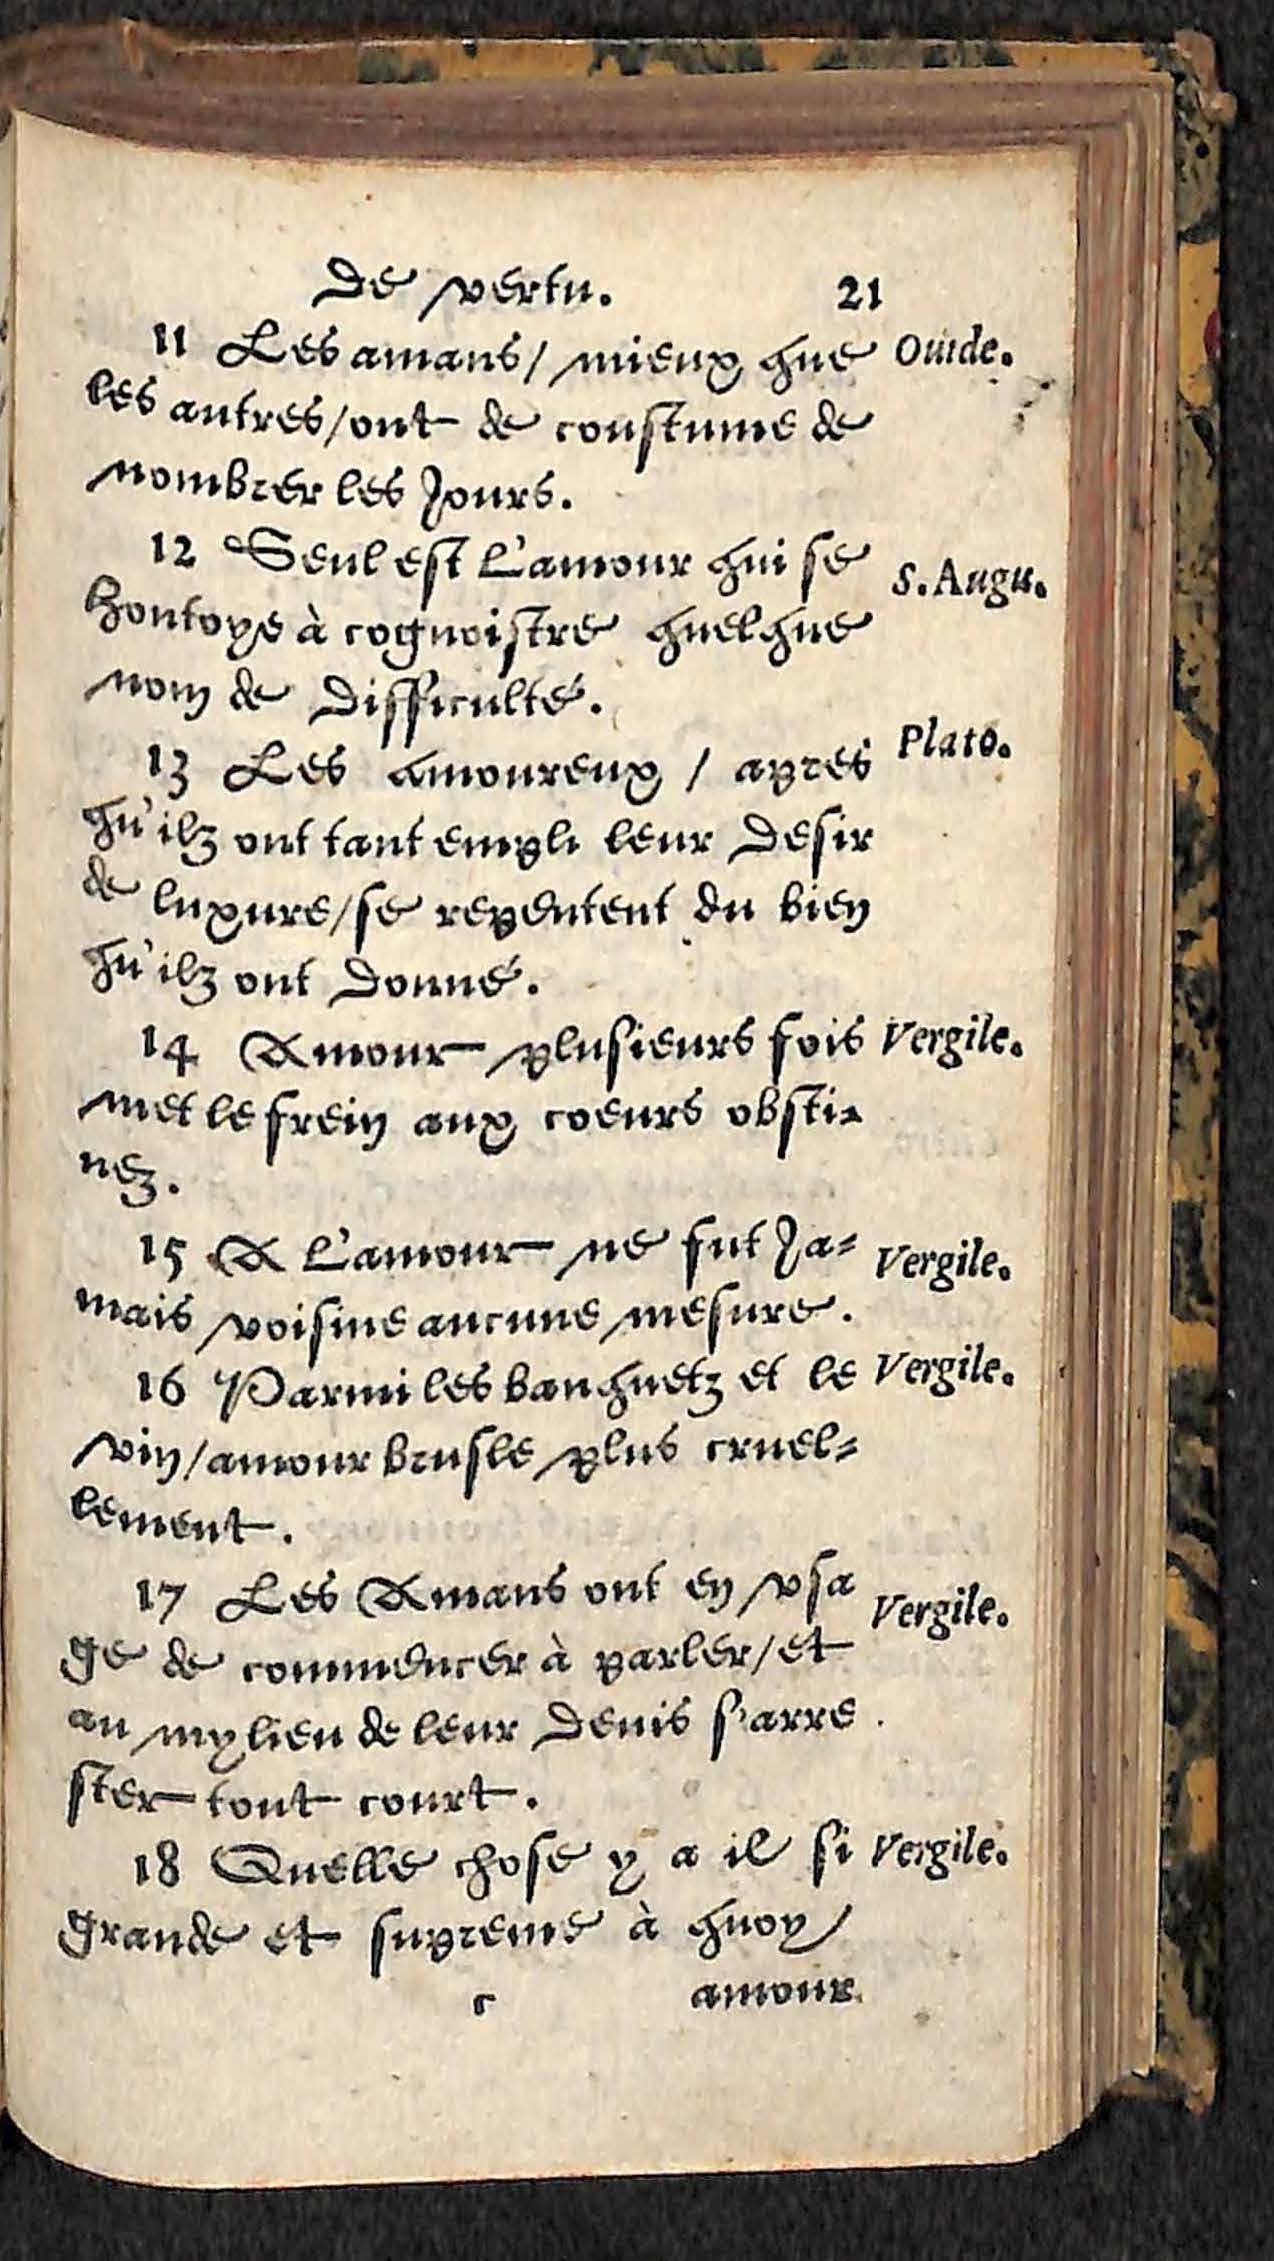 De vertu. 21
11 Les amans/ mieux que Ouide.
les autres/ont de coustume de
nombrer les Jours.
12 Seul est L'amour qui se S. Augu.
hontoye à cognoistre quelque
nom de Difficulté.
13 Les amoureux / apres Plato.
qu'ilz ont tant empli leur Desir
de luxure/se repentent du bien
qu'ilz ont Donné.
14 Amour plusieurs fois Vergile.
met le frein aux coeurs obsti-
nez.
15 A L'amour ne fut Ja- Vergile.
mais voisine aucune mesure.
16 Parmi les banquetz et le Vergile.
vin/amour brusle plus cruel-
lement.
17 Les Amans ont en vsa Vergile.
ge de commencer à parler/et
au mylieu de leur Deuis s'arre
ster tout court.
18 Quelle chose y a il si Vergile.
grande et supreme à quoy
c amour